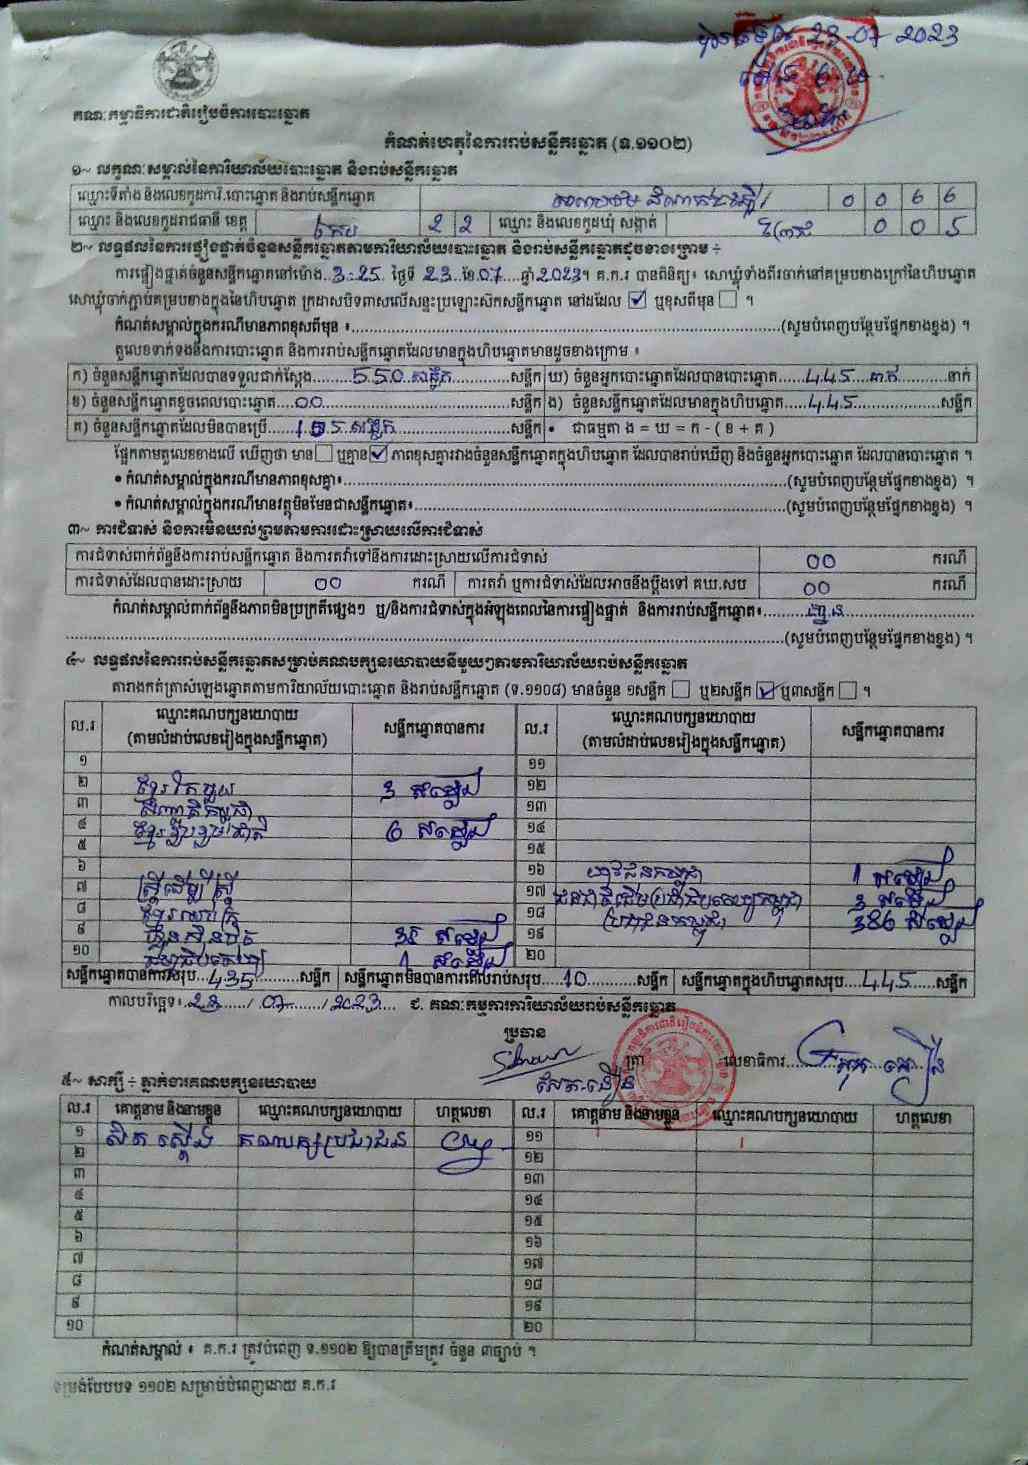 23-07 2023
គណៈកម្មាធិការជាតិរៀបចំការបោះឆ្នោត
កំណត់ហេតុនៃការរាប់សន្លឹកឆ្នោត (ទ.១១០២)
១~ លក្ខណៈសម្គាល់នៃការិយាល័យបោះឆ្នោត និងរាប់សន្លឹកឆ្នោត
ឈ្មោះទីតាំង និងលេខកូដការិ.បោះឆ្នោត និងរាប់សន្លឹកឆ្នោត 0 0 6 6
ឈ្មោះ និងលេខកូដរាជធានី ខេត្ត កែប 2 2 ឈ្មោះ និងលេខកូដឃុំ សង្កាត់ 0 0 5
២~ លទ្ធផលនៃការផ្ទៀងផ្ទាត់ចំនួនសន្លឹកឆ្នោតតាមការិយាល័យបោះឆ្នោត និងរាប់សន្លឹកឆ្នោតដូចខាងក្រោម ÷
ការផ្ទៀងផ្ទាត់ចំនួនសន្លឹកឆ្នោតនៅម៉ោង 3:25 ថ្ងៃទី 23 ខែ 07 ឆ្នាំ 2023។ គ.ក.រ បានពិនិត្យ៖ សោឃ្លុំទាំងពីរចាក់នៅគម្របខាងក្រៅនៃហិបឆ្នោត
សោឃ្លុំចាក់ភ្ជាប់គម្របខាងក្នុងនៃហិបឆ្នោត ក្រដាសបិទពាសលើសន្ទះប្រឡោះសិកសន្លឹកឆ្នោត នៅដដែល ☑ ឬខុសពីមុន ☐ ។
កំណត់សម្គាល់ក្នុងករណីមានភាពខុសពីមុន ៖ (សូមបំពេញបន្ថែមផ្នែកខាងខ្នង) ។
តួលេខទាក់ទងនឹងការបោះឆ្នោត និងការរាប់សន្លឹកឆ្នោតដែលមានក្នុងហិបឆ្នោតមានដូចខាងក្រោម ៖
ក) ចំនួនសន្លឹកឆ្នោតដែលបានទទួលជាក់ស្តែង 550 សន្លឹក ឃ) ចំនួនអ្នកបោះឆ្នោតដែលបានបោះឆ្នោត 445 នាក់ នាក់
ខ) ចំនួនសន្លឹកឆ្នោតខូចពេលបោះឆ្នោត 00 សន្លឹក ង) ចំនួនសន្លឹកឆ្នោតដែលមានក្នុងហិបឆ្នោត 445 សន្លឹក
គ) ចំនួនសន្លឹកឆ្នោតដែលមិនបានប្រើ សន្លឹក • ជាធម្មតា ង = ឃ = ក - ( ខ + គ )
ផ្អែកតាមតួលេខខាងលើ ឃើញថា មាន ☐ ឬគ្មាន ☑ ភាពខុសគ្នារវាងចំនួនសន្លឹកឆ្នោតក្នុងហិបឆ្នោត ដែលបានរាប់ឃើញ និងចំនួនអ្នកបោះឆ្នោត ដែលបានបោះឆ្នោត ។
• កំណត់សម្គាល់ក្នុងករណីមានភាពខុសគ្នា៖ (សូមបំពេញបន្ថែមផ្នែកខាងខ្នង) ។
• កំណត់សម្គាល់ក្នុងករណីមានវត្ថុមិនមែនជាសន្លឹកឆ្នោត៖ (សូមបំពេញបន្ថែមផ្នែកខាងខ្នង) ។
៣~ ការជំទាស់ និងការមិនយល់ព្រមតាមការដោះស្រាយលើការជំទាស់
ការជំទាស់ពាក់ព័ន្ធនឹងការរាប់សន្លឹកឆ្នោត និងការតវ៉ាទៅនឹងការដោះស្រាយលើការជំទាស់ 00 ករណី
ការជំទាស់ដែលបានដោះស្រាយ 00 ករណី ការតវ៉ា ឬការជំទាស់ដែលអាចនឹងប្តឹងទៅ គឃ.សប 00 ករណី
កំណត់សម្គាល់ពាក់ព័ន្ធនឹងភាពមិនប្រក្រតីផ្សេងៗ ឬ/និងការជំទាស់ក្នុងអំឡុងពេលនៃការផ្ទៀងផ្ទាត់ និងការរាប់សន្លឹកឆ្នោត៖ គ្មាន
(សូមបំពេញបន្ថែមផ្នែកខាងខ្នង) ។
៤~ លទ្ធផលនៃការរាប់សន្លឹកឆ្នោតសម្រាប់គណបក្សនយោបាយនីមួយៗតាមការិយាល័យរាប់សន្លឹកឆ្នោត
តារាងកត់ត្រាសំឡេងឆ្នោតតាមការិយាល័យបោះឆ្នោត និងរាប់សន្លឹកឆ្នោត (ទ.១១០៨) មានចំនួន ១សន្លឹក ☐ ឬ២សន្លឹក ☑ ឬ៣សន្លឹក ☐ ។
ល.រ ឈ្មោះគណបក្សនយោបាយ (តាមលំដាប់លេខរៀងក្នុងសន្លឹកឆ្នោត) សន្លឹកឆ្នោតបានការ ល.រ ឈ្មោះគណបក្សនយោបាយ (តាមលំដាប់លេខរៀងក្នុងសន្លឹកឆ្នោត) សន្លឹកឆ្នោតបានការ
១ ១១
២ ខ្មែរតែមួយ 3 សំឡេង ១២
៣ ១៣
៤ 6 សំឡេង ១៤
៥ ១៥
៦ ១៦ យុវជនកម្ពុជា 1 សំឡេង
៧ ស្ត្រីដើម្បីស្ត្រី ១៧ 3 សំឡេង
៨ ១៨ ប្រជាជនកម្ពុជា 386 សំឡេង
៩ ហ្វ៊ុនស៊ិនប៉ិច 35 សំឡេង ១៩
១០ 1 សំឡេង ២០
សន្លឹកឆ្នោតបានការសរុប 435 សន្លឹក សន្លឹកឆ្នោតមិនបានការដែលរាប់សរុប 10 សន្លឹក សន្លឹកឆ្នោតក្នុងហិបឆ្នោតសរុប 445 សន្លឹក
កាលបរិច្ឆេទ៖ 23 / 07 / 2023 ជ. គណៈកម្មការការិយាល័យរាប់សន្លឹកឆ្នោត
ប្រធាន
ត្រា លេខាធិការ
៥~ សាក្សី ÷ ភ្នាក់ងារគណបក្សនយោបាយ
ល.រ គោត្តនាម និងនាមខ្លួន ឈ្មោះគណបក្សនយោបាយ ហត្ថលេខា ល.រ គោត្តនាម និងនាមខ្លួន ឈ្មោះគណបក្សនយោបាយ ហត្ថលេខា
១ គណបក្សប្រជាជន ១១
២ ១២
៣ ១៣
៤ ១៤
៥ ១៥
៦ ១៦
៧ ១៧
៨ ១៨
៩ ១៩
១០ ២០
កំណត់សម្គាល់ ៖ គ.ក.រ ត្រូវបំពេញ ទ.១១០២ ឱ្យបានត្រឹមត្រូវ ចំនួន ៣ច្បាប់ ។
ទម្រង់បែបបទ ១១០២ សម្រាប់បំពេញដោយ គ.ក.រ